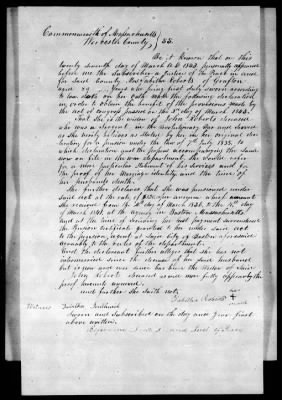 Commonwealth of Massachusetts
Worcester County, } SS.
Be it Known that on this
twenty seventh day of March A.D. 1843, personally appeared
before me the Subscriber a Justice of the Peace in and
for said County Mrs Tabitha Roberts of Grafton
aged 89 years who being first duly sworn according
to law doth on her oath make the following declaration
in order to obtain the benefit of the provisions made by
the act of Congress passed on the 3d March 1843.
That She is the widow of John Roberts deceased
who was a Sergeant in the Revolutionary War and Served
as She verily believes as stated by her in her original declaration
for a pension under the law of 7th July 1838, to
which declaration and the papers accompanying the same
now on file in the war department, She would refer
for a more particular Statement of his Services and for
the proof of her Marriage identity and the time of
her husbands death.
She further declares that She was pensioned under
Said act at the rate of per annum which amount
She received from the 4th of March 1836 to the 4th
of March 1841 at the agency in Boston Massachusetts
and at the time of receiving her last payment surrendered
the pension certificate granted to her under said act
to the pension agent at Said City of Boston
agreeably to the rules of the department.
And the declarant further alleges that she has not
intermarried since the decease of her said husband
but is now and ever has been the Widow of Said
John Roberts deceased as will more fully appear by the
proof hereunto annexed.
and further She Saith not,
Tabitha Roberts her + mark
Witness
Sworn and Subscribed on the day and year first
above written.